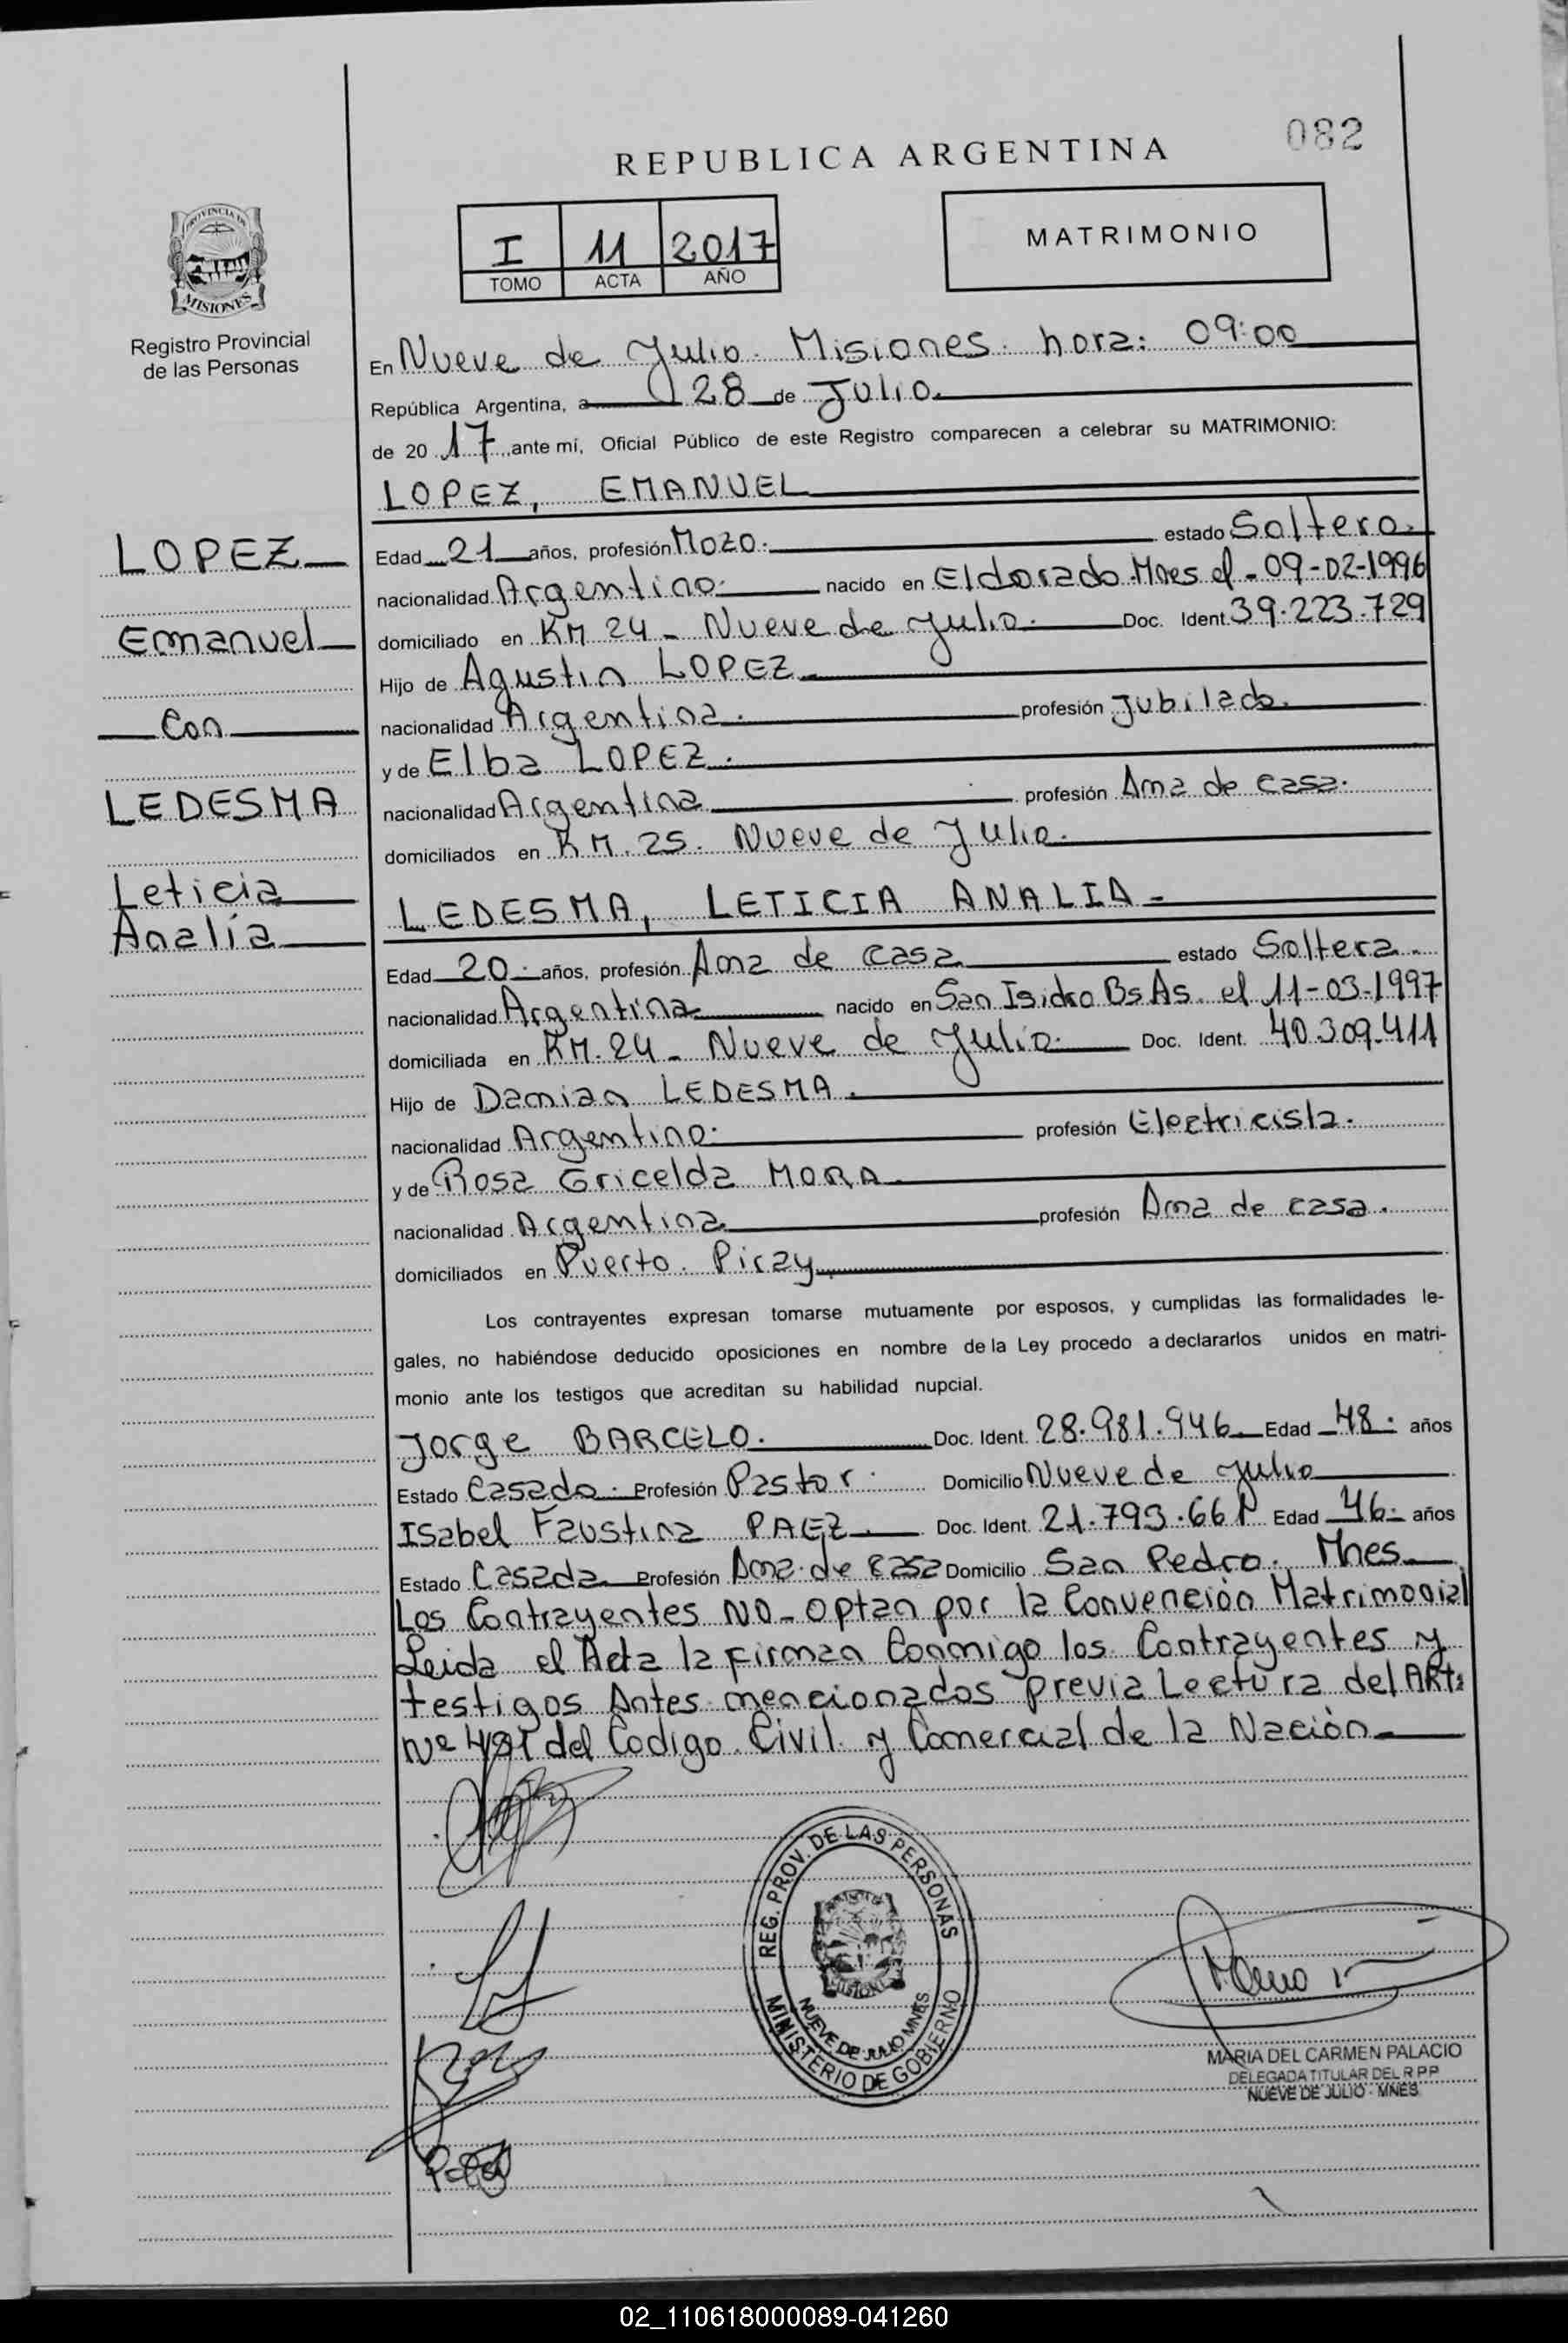 082
REPUBLICA ARGENTINA
I 11 2017
TOMO ACTA AÑO
MATRIMONIO
PROVINCIA DE
MISIONES
Registro Provincial
de las Personas
En Nueve de Julio. Misiones. hora: 09:00
República Argentina, a 28 de Julio.
de 20 17 ante mí, Oficial Público de este Registro comparecen a celebrar su MATRIMONIO:
LOPEZ, EMANUEL
Edad 21 años, profesión Mozo. estado Soltero.
nacionalidad Argentino. nacido en Eldorado Mnes el - 09-02-1996
domiciliado en KM 24 - Nueve de Julio. Doc. Ident. 39.223.729
Hijo de Agustin LOPEZ
nacionalidad Argentina. profesión Jubilado.
y de Elba LOPEZ.
nacionalidad Argentina profesión Ama de casa.
domiciliados en KM. 25. Nueve de Julio.
LEDESMA, LETICIA ANALIA -
Edad 20. años, profesión Ama de casa estado Soltera.
nacionalidad Argentina nacido en San Isidro Bs As. el 11-03-1997
domiciliada en KM. 24 - Nueve de Julio. Doc. Ident. 40.309.411
Hijo de Damian LEDESMA.
nacionalidad Argentino. profesión Electricista.
y de Rosa Gricelda MORA
nacionalidad Argentina profesión Ama de casa.
domiciliados en Puerto. Piray
Los contrayentes expresan tomarse mutuamente por esposos, y cumplidas las formalidades le-
gales, no habiéndose deducido oposiciones en nombre de la Ley procedo a declararlos unidos en matri-
monio ante los testigos que acreditan su habilidad nupcial.
Jorge BARCELO. Doc. Ident. 28.981.946 Edad 48. años
Estado Casado. Profesión Pastor. Domicilio Nueve de Julio
Isabel Faustina PAEZ. Doc. Ident. 21.793.661 Edad 46. años
Estado Casada Profesión Ama de casa Domicilio San Pedro. Mnes
Los Contrayentes NO - optan por la Convención Matrimonial
Leida el Acta la firman Conmigo los Contrayentes y
testigos Antes mencionados previa Lectura del ARt:
Nº 431 del Codigo. Civil. y Comercial de la Nación
LOPEZ
Emanuel
Con
LEDESMA
Leticia
Analía
REG. PROV. DE LAS PERSONAS
MISIONES
NUEVE DE JULIO MNES
MINISTERIO DE GOBIERNO
MARIA DEL CARMEN PALACIO
DELEGADA TITULAR DEL R P P
NUEVE DE JULIO - MNES
02_110618000089-041260